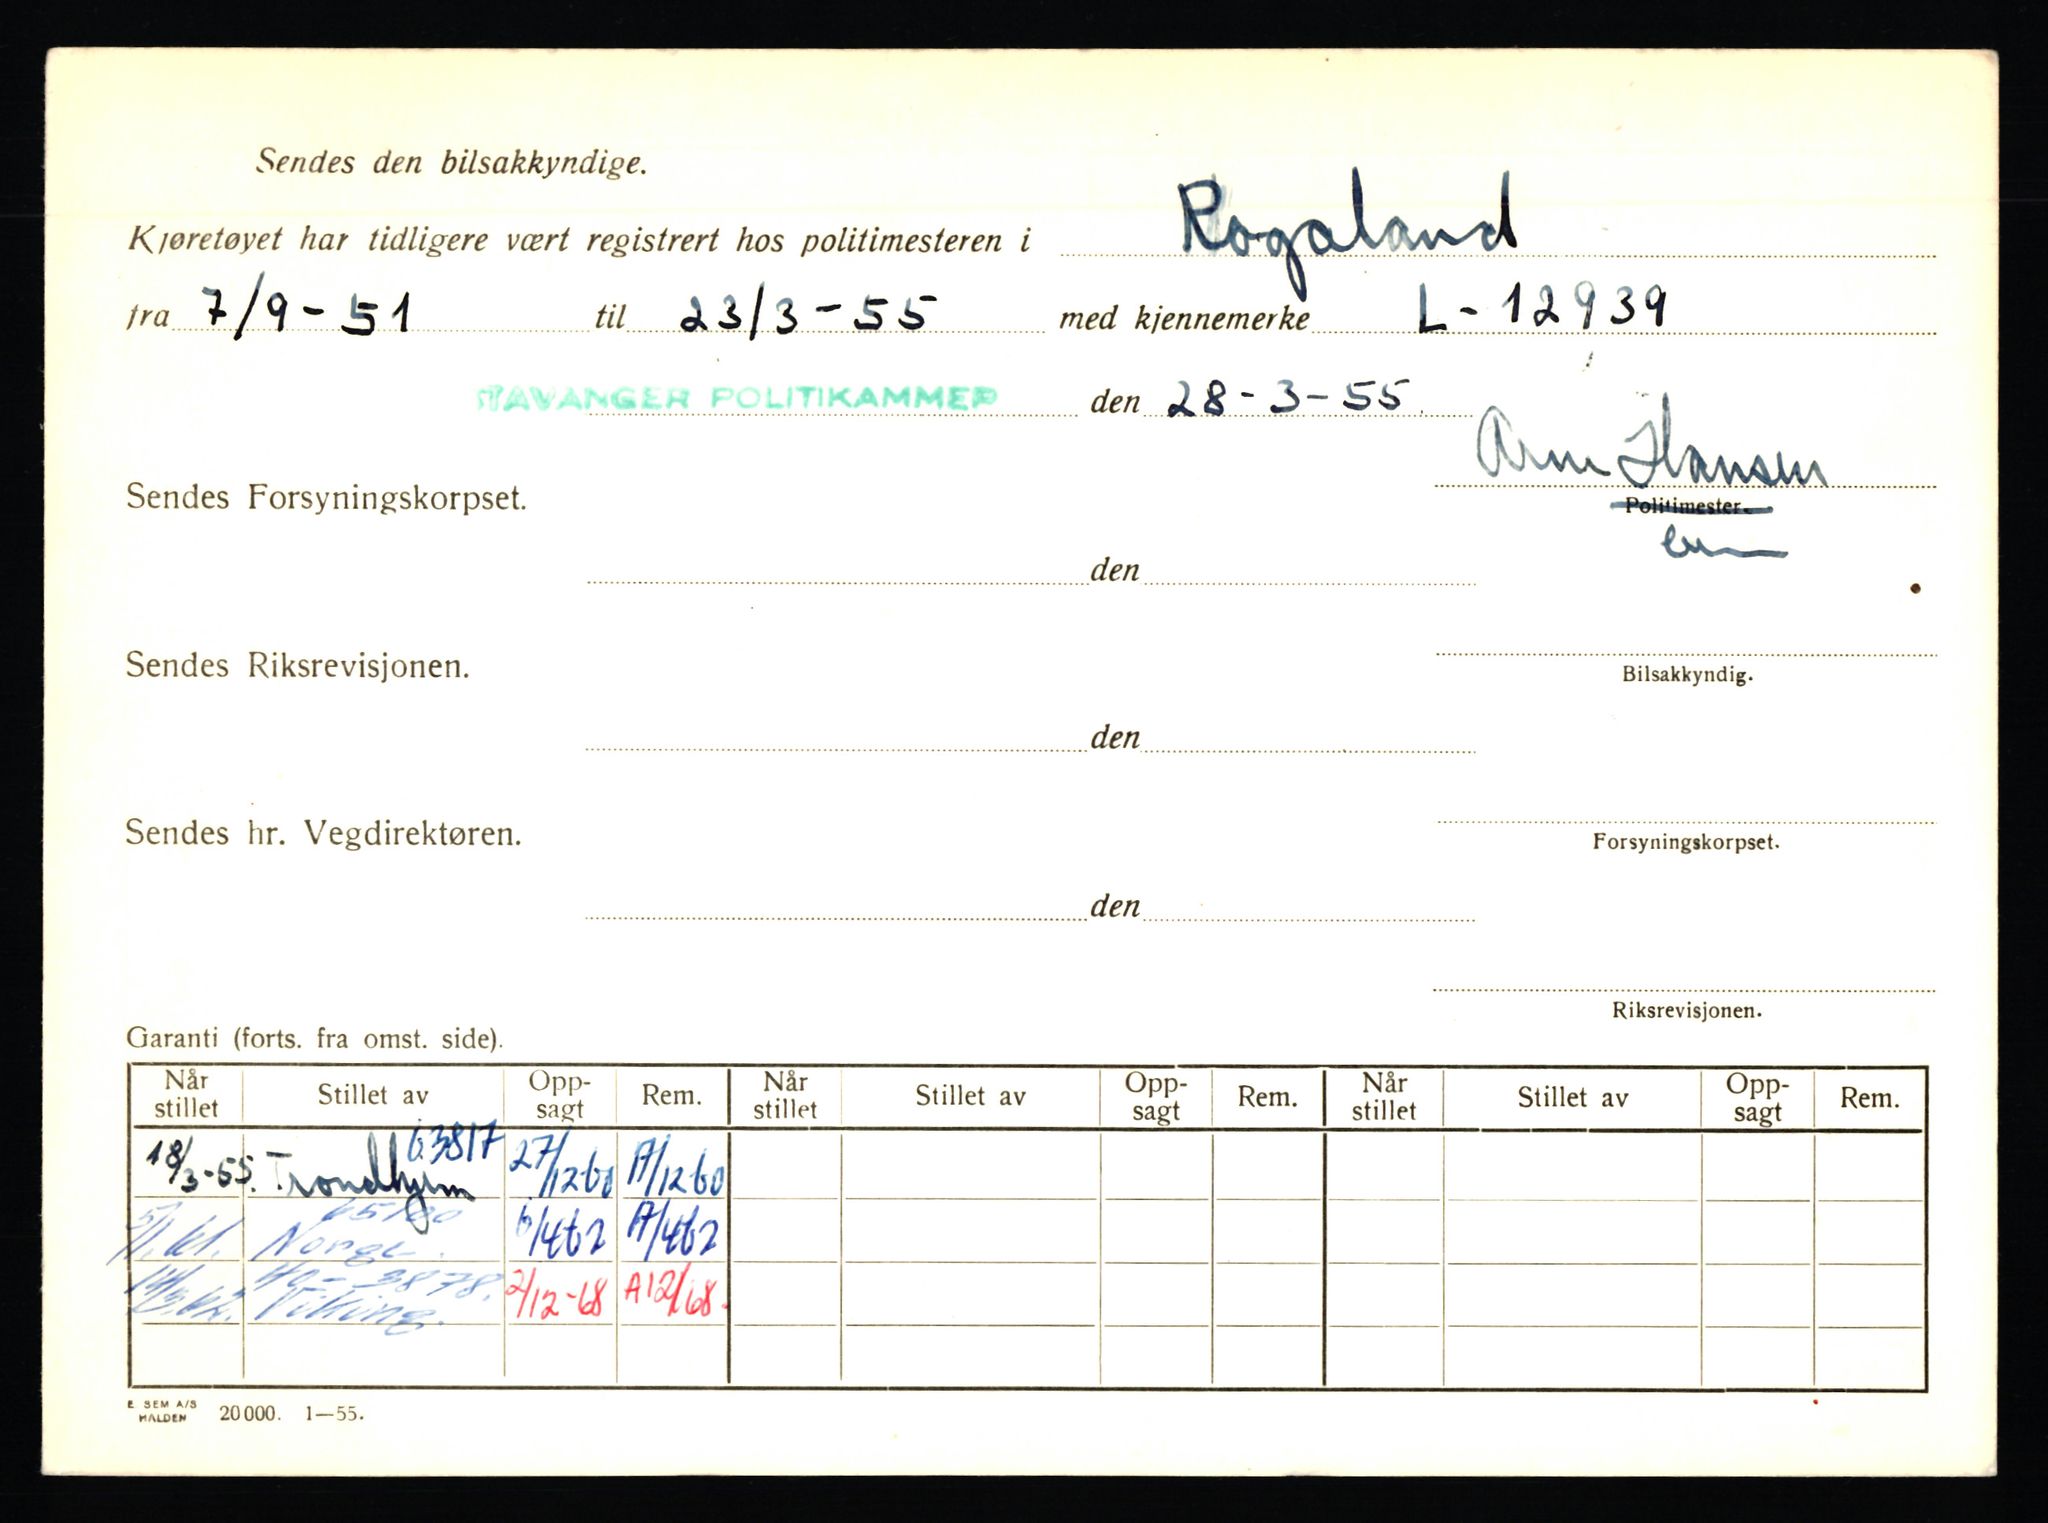 Sendes den bilsakkyndige.
Kjøretøyet har tidligere vært registrert hos politimesteren i Rogaland
fra 7/9-51 til 23/3-55 med kjennemerke L-12939
TAVANGER POLITIKAMMER den 28-3-55
Arne Hansen
Sendes Forsyningskorpset.
Politimester.
den
Sendes Riksrevisjonen.
Bilsakkyndig.
den
Sendes hr. Vegdirektøren.
Forsyningskorpset.
den
Riksrevisjonen.
Garanti (forts. fra omst. side).
Når stillet Stillet av Opp-sagt Rem. Når stillet Stillet av Opp-sagt Rem. Når stillet Stillet av Opp-sagt Rem.
63817
18/3-55. Trondhjem 27/12 60 A/12 60
5/1.61. Norge. 6/4 62 A/4 62
3878.
Viking. 2/12-68 A12/68.
E. SEM A/S
HALDEN 20000. 1—55.